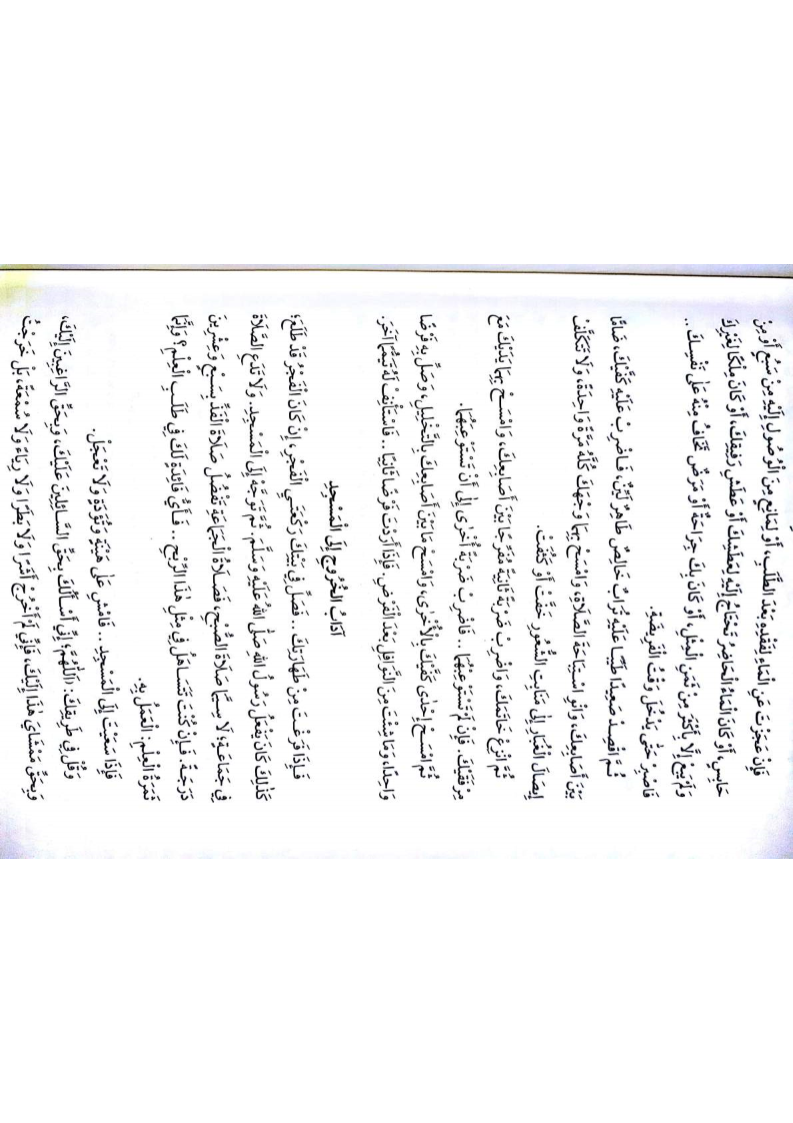 فَإِنْ عَجَزْتَ عَنِ الْمَاءِ لِفَقْدِهِ بَعْدَ الطَّلَبِ، أَوْ لِمَانِعٍ مِنَ الْوُصُولِ إِلَيْهِ مِنْ سَبُعٍ أَوْ مِنْ
حَابِسٍ، أَوْ كَانَ الْمَاءُ الْحَاضِرُ تَحْتَاجُ إِلَيْهِ لِعَطَشِكَ أَوْ عَطَشِ رَفِيقِكَ، أَوْ كَانَ مِلْكًا لِغَيْرِكَ
وَلَمْ يَبِعْ إِلَّا بِأَكْثَرَ مِنْ ثَمَنِ الْمِثْلِ، أَوْ كَانَ بِكَ جِرَاحَةٌ أَوْ مَرَضٌ تَخَافُ مِنْهُ عَلَى نَفْسِكَ ..
فَاصْبِرْ حَتَّى يَدْخُلَ وَقْتُ الْفَرِيضَةِ.
ثُمَّ اقْصِدْ صَعِيدًا طَيِّبًا عَلَيْهِ تُرَابٌ خَالِصٌ طَاهِرٌ لَيِّنٌ، فَاضْرِبْ عَلَيْهِ كَفَّيْكَ، ضَامًّا
بَيْنَ أَصَابِعِكَ، وَانْوِ اسْتِبَاحَةَ الصَّلَاةِ، وَامْسَحْ بِهِمَا وَجْهَكَ كُلَّهُ مَرَّةً وَاحِدَةً، وَلَا تَتَكَلَّفْ
إِيصَالَ الْغُبَارِ إِلَى مَنَابِتِ الشُّعُورِ خَفَّتْ أَوْ كَثُفَتْ.
ثُمَّ انْزِعْ خَاتَمَكَ، وَاضْرِبْ ضَرْبَةً ثَانِيَةً مُفَرِّجًا بَيْنَ أَصَابِعِكَ، وَامْسَحْ بِهِمَا يَدَيْكَ مَعَ
مِرْفَقَيْكَ، فَإِنْ لَمْ تَسْتَوْعِبْهُمَا .. فَاضْرِبْ ضَرْبَةً أُخْرَى إِلَى أَنْ تَسْتَوْعِبَهُمَا.
ثُمَّ امْسَحْ إِحْدَى كَفَّيْكَ بِالْأُخْرَى، وَامْسَحْ مَا بَيْنَ أَصَابِعِكَ بِالتَّخْلِيلِ، وَصَلِّ بِهِ فَرْضًا
وَاحِدًا، وَمَا شِئْتَ مِنَ النَّوَافِلِ بَعْدَ الْفَرْضِ. فَإِذَا أَرَدْتَ فَرْضًا ثَانِيًا .. فَاسْتَأْنِفْ لَهُ تَيَمُّمًا آخَرَ.
آدَابُ الْخُرُوجِ إِلَى الْمَسْجِدِ
فَإِذَا فَرَغْتَ مِنْ طَهَارَتِكَ .. فَصَلِّ فِي بَيْتِكَ رَكْعَتَيِ الْفَجْرِ، إِنْ كَانَ الْفَجْرُ قَدْ طَلَعَ؛
كَذٰلِكَ كَانَ يَفْعَلُ رَسُولُ اللهِ صَلَّى اللهُ عَلَيْهِ وَسَلَّمَ. ثُمَّ تَوَجَّهْ إِلَى الْمَسْجِدِ. وَلَا تَدَعِ الصَّلَاةَ
فِي جَمَاعَةٍ؛ لَا سِيَّمَا صَلَاةَ الصُّبْحِ، فَصَلَاةُ الْجَمَاعَةِ تَفْضُلُ صَلَاةَ الْفَذِّ بِسَبْعٍ وَعِشْرِينَ
دَرَجَةً. فَإِنْ كُنْتَ تَتَسَاهَلُ فِي مِثْلِ هٰذَا الرِّبْحِ .. فَأَيُّ فَائِدَةٍ لَكَ فِي طَلَبِ الْعِلْمِ؟ وَإِنَّمَا
ثَمَرَةُ الْعِلْمِ: الْعَمَلُ بِهِ.
فَإِذَا سَعَيْتَ إِلَى الْمَسْجِدِ .. فَامْشِ عَلَى هَيْنَةٍ وَتُؤَدَةٍ وَلَا تَعْجَلْ.
وَقُلْ فِي طَرِيقِكَ: اَللّٰهُمَّ إِنِّي أَسْأَلُكَ بِحَقِّ السَّائِلِينَ عَلَيْكَ، وَبِحَقِّ الرَّاغِبِينَ إِلَيْكَ،
وَبِحَقِّ مَمْشَايَ هٰذَا إِلَيْكَ، فَإِنِّي لَمْ أَخْرُجْ أَشَرًا وَلَا بَطَرًا وَلَا رِيَاءً وَلَا سُمْعَةً، بَلْ خَرَجْتُ